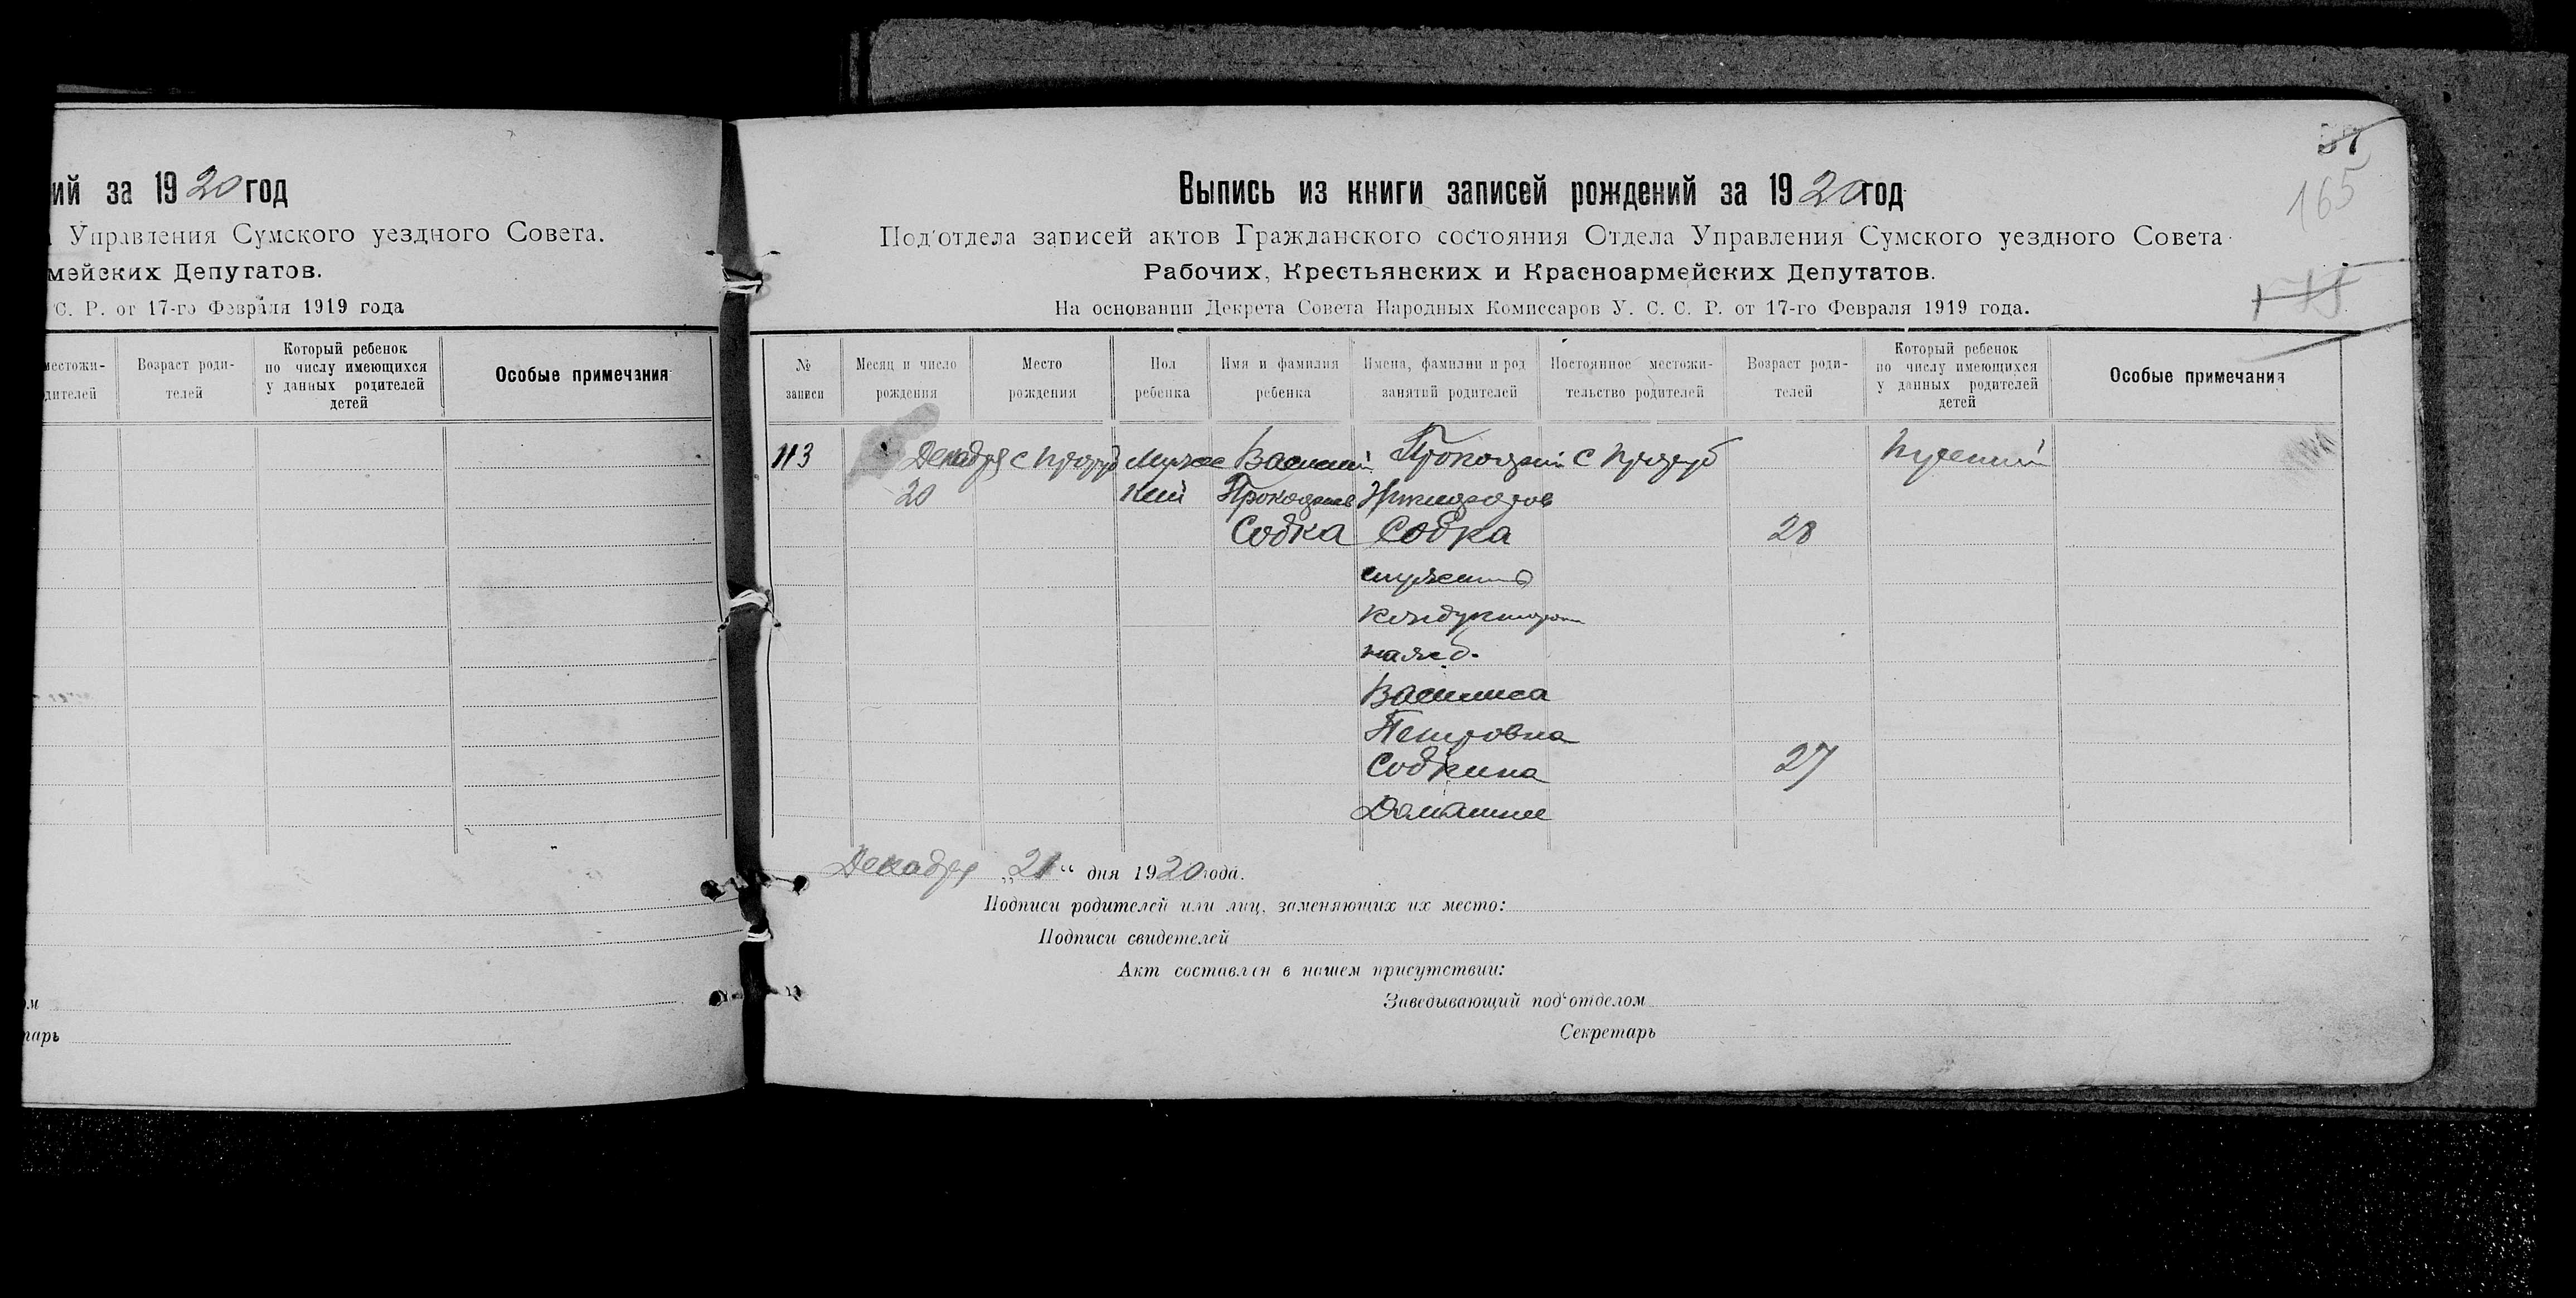 ий за 1920 год
Управления Сумского уездного Совета.
мейских Депутатов.
С. Р. от 17-го Февраля 1919 года
местожи-
дителей
Возраст роди-
телей
Который ребенок
по числу имеющихся
у данных родителей
детей
Особые примечания
ом
тарь
165
Выпись из книги записей рождений за 1920 год
Под'отдела записей актов Гражданского состояния Отдела Управления Сумского уездного Совета
Рабочих, Крестьянских и Красноармейских Депутатов.
На основании Декрета Совета Народных Комиссаров У. С. С. Р. от 17-го Февраля 1919 года.
№
записи
Месяц и число
рождения
Место
рождения
Пол
ребенка
Имя и фамилия
ребенка
Имена, фамилии и род
занятий родителей
Постоянное местожи-
тельство родителей
Возраст роди-
телей
Который ребенок
по числу имеющихся
у данных родителей
детей
Особые примечания
113
Декабря
20
Мужс
кий
Василий
Прокофиев
Собка
Прокофий
Собка
кондуктором
Василиса
Петровна
Собкина
Домашнее
28
27
Декабря „21“ дня 1920 года.
Подписи родителей или лиц, заменяющих их место:
Подписи свидетелей
Акт составлен в нашем присутствии:
Заведывающий под'отделом
Секретарь